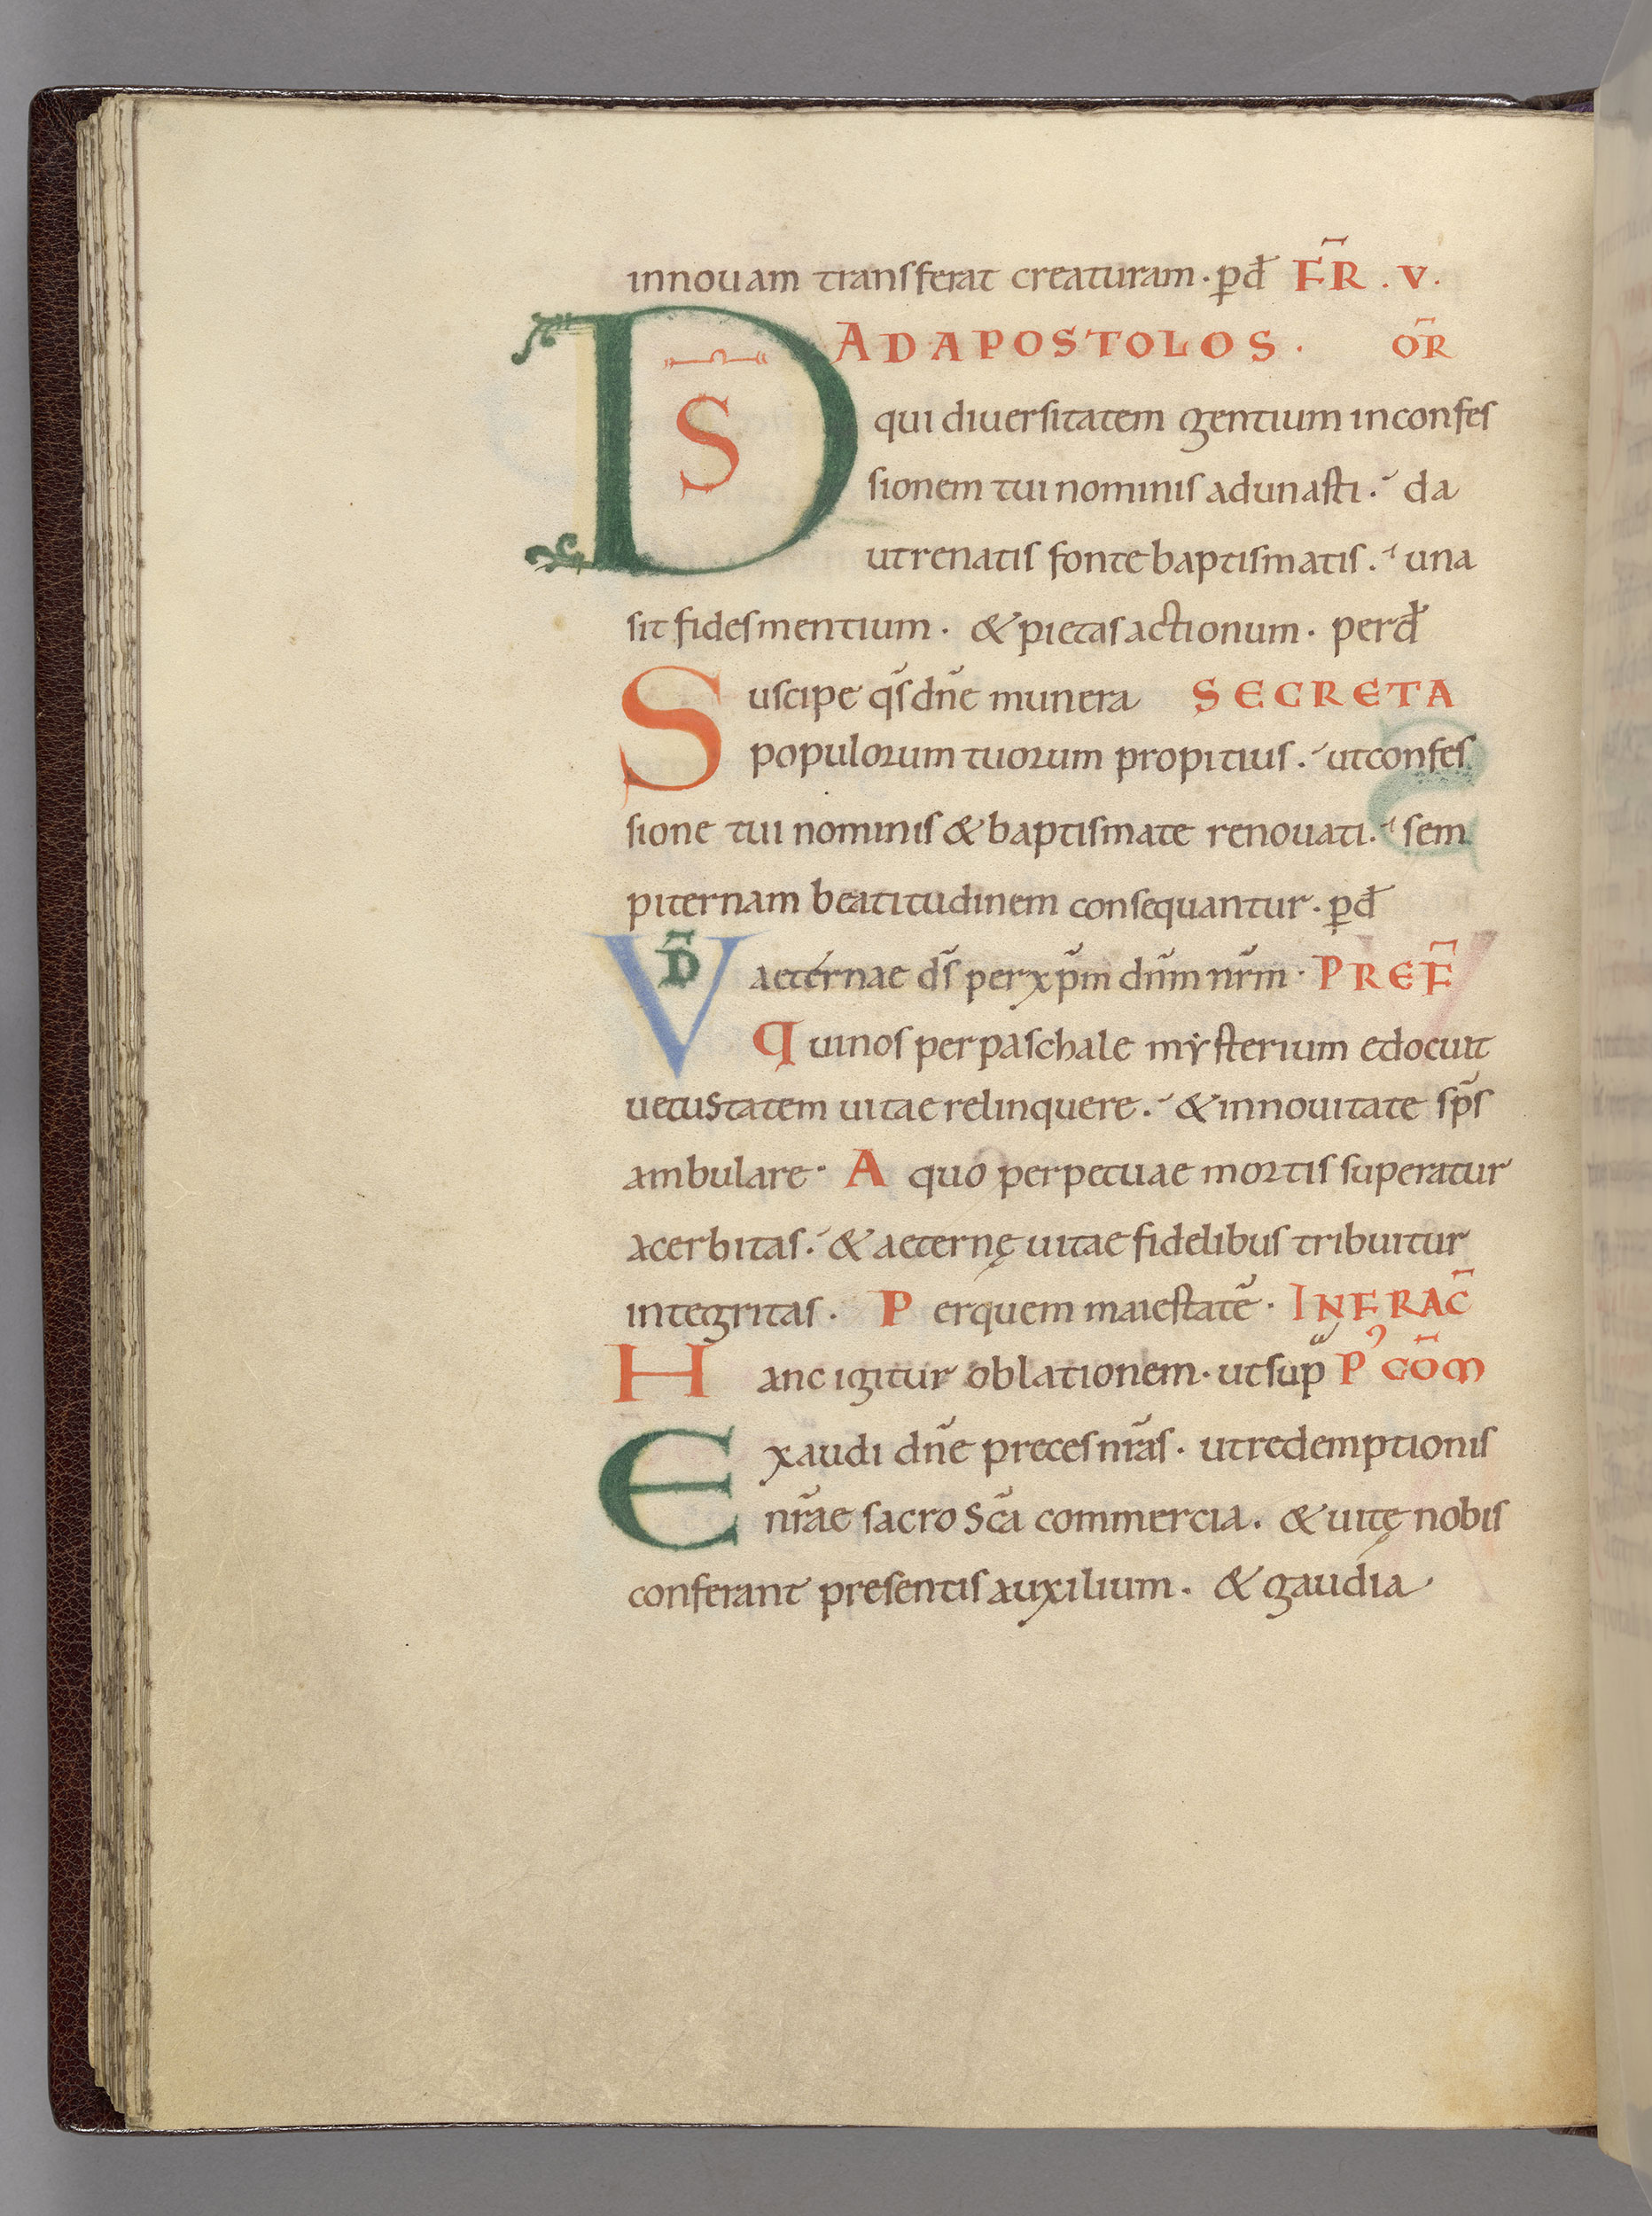 innouam transferat creaturam · p̱d̄ FR̄ . V .
AD APOSTOLOS · OR̄
DS̄ qui diuersitatem gentium inconfes
sionem tui nominis adunasti . da
utrenatis fonte baptismatis . una
sit fides mentium . & pietas actionum . perd̄
Suscipe qs̄ dn̄e munera SECRETA
populorum tuorum propitius . utconfes
sione tui nominis & baptismate renouati . sem
piternam beatitudinem consequantur . p̱d̄
VD̄ aeternae ds̄ per xp̄m dn̄m nr̄m · PREF̄
Quinos per paschale mysterium edocuit
uetustatem uitae relinquere . & innouitate sp̄s
ambulare · A quo perpetuae mortis superatur
acerbitas . & aeternę uitae fidelibus tribuitur
integritas . Perquem maiestatē · INFRAC̄
Hanc igitur oblationem · utsup̱ P' CŌM
Exaudi dn̄e preces nr̄as . utredemptionis
nr̄ae sacro sc̄a commercia . & uitę nobis
conferant presentis auxilium . & gaudia